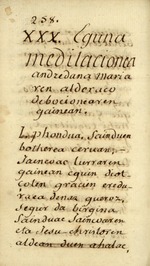 258.
XXX. Eguna
meditacionea
andredana maria
ren aldezco
debocionaren
gainean.
Lphondua, Sainduen
bathetea ceruan,
Saincoac lurraren
gainean eguin diot
coten gracien eredu
raca denaz gueroz,
Segur da birgina
Sainduac Saincoaren
eta Jesu-christoren
aldean duen ahalac,